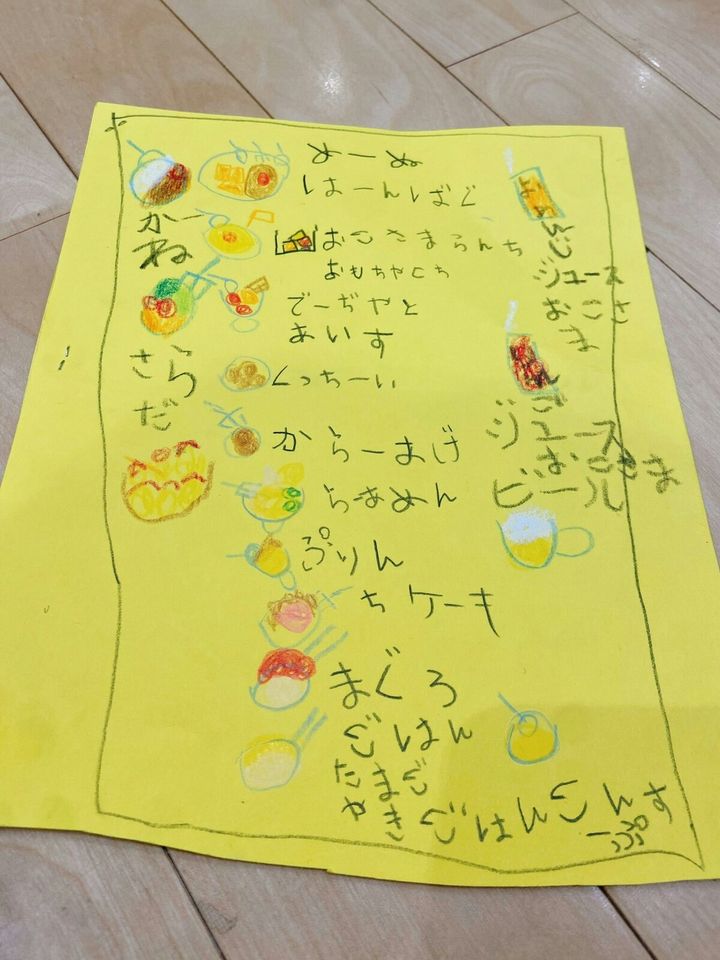 めーぬ
はーんばぐ
かー
ね
おこさまらんち
おもちゃこち
でーぢやと
あいす
さら
だ
くっちーい
からーあげ
らあめん
ぷりん
ちケーキ
まぐろ
ごはん
たまご
やき
ごはんこん
ーぷす
んじ
ジュース
おこさ
ま
んご
ジュース
おこさま
ビール